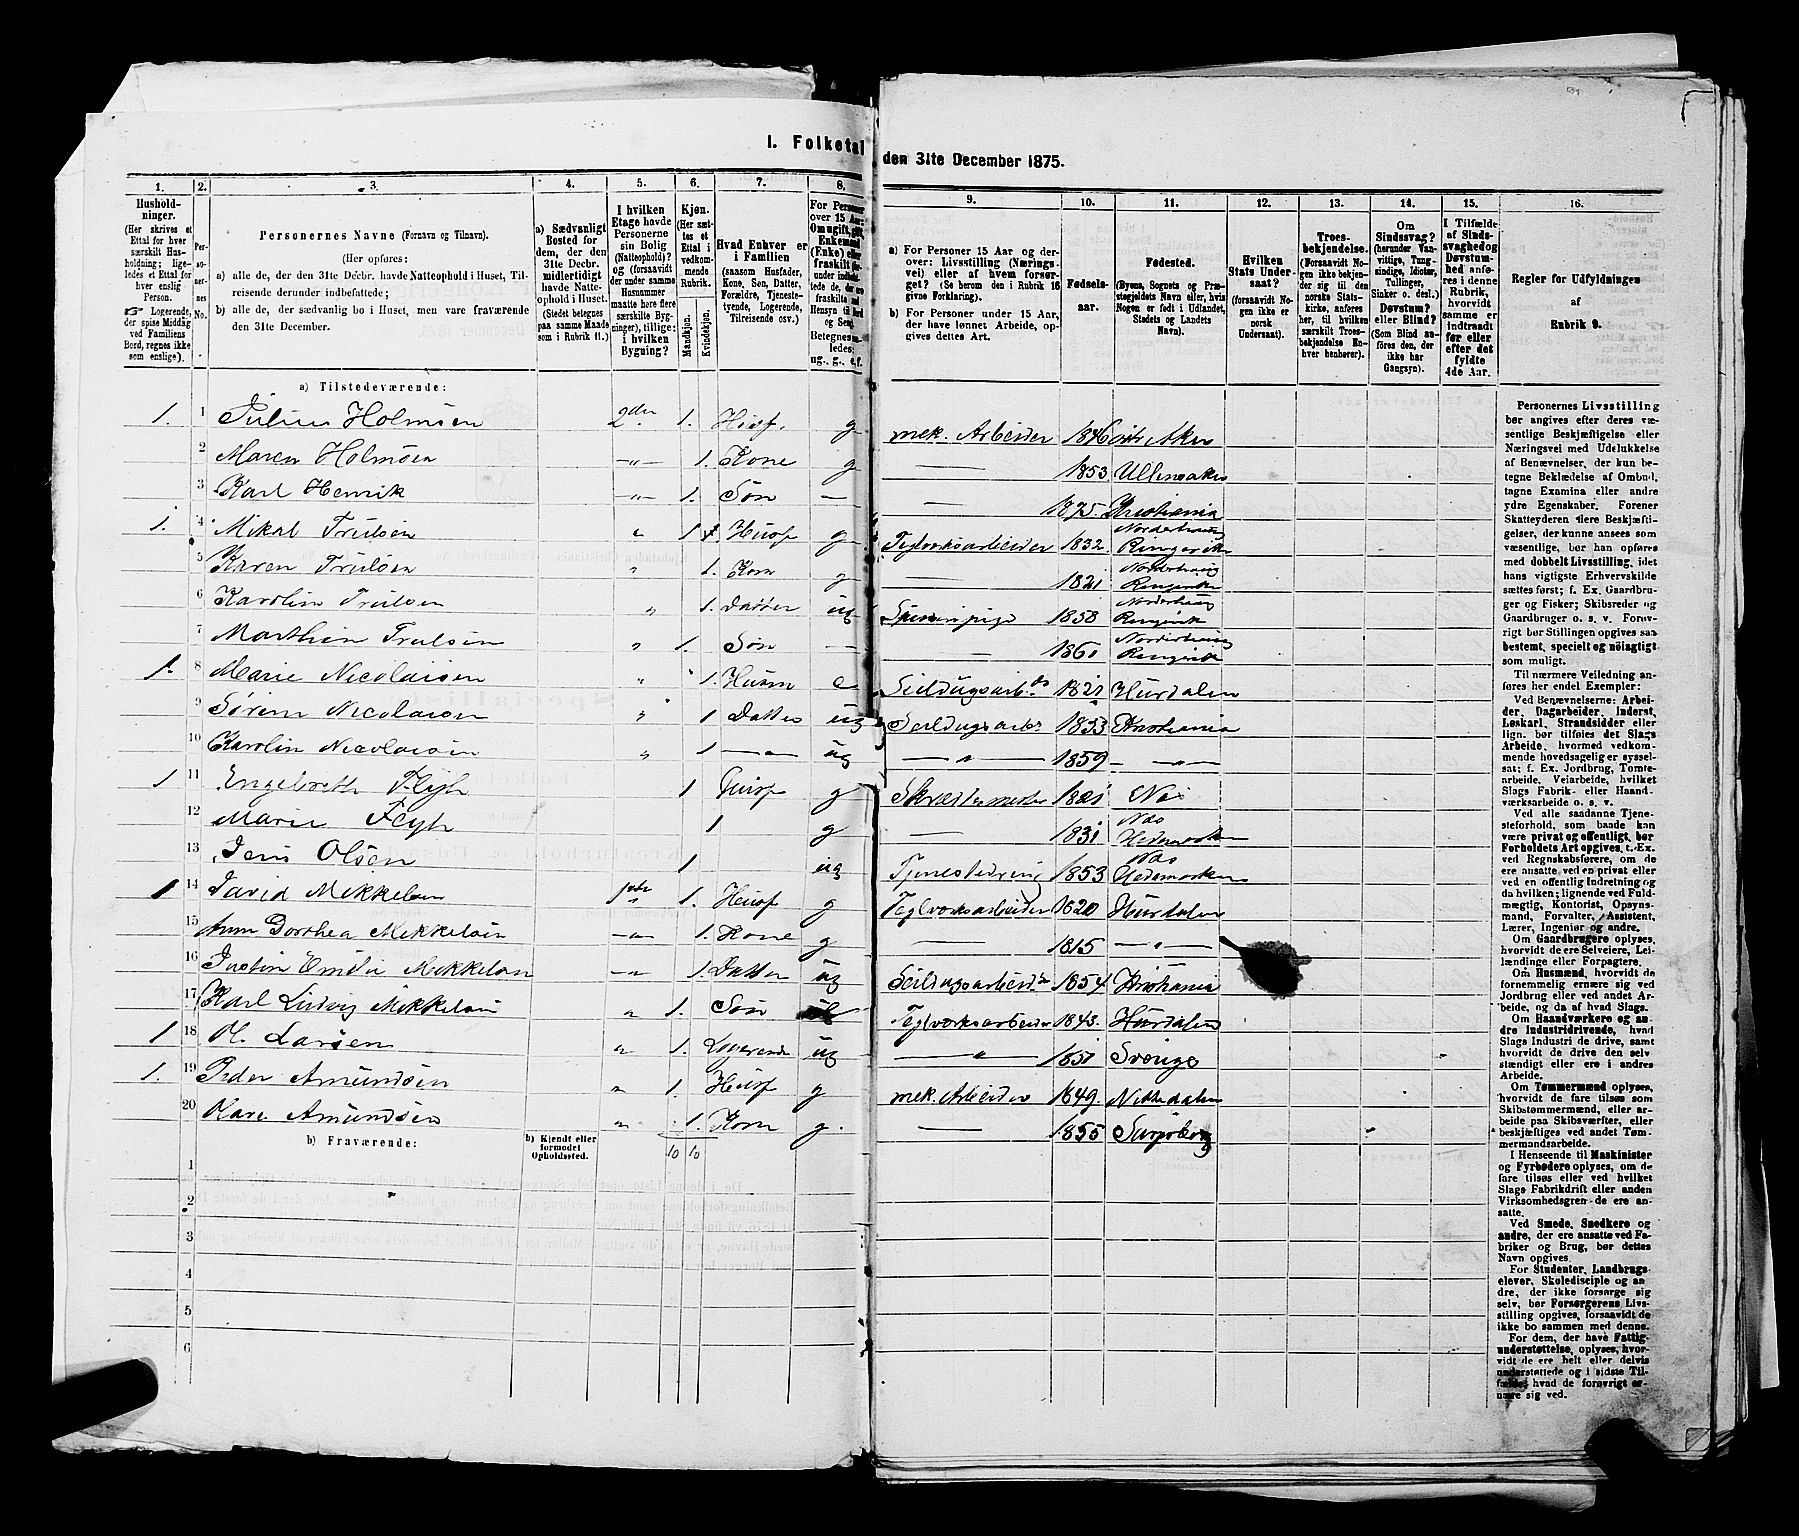 I. Folketal den 31te December 1875.
1. 2. 3. 4. 5. 6. 7. 8. 9. 10. 11. 12. 13. 14. 15. 16.
Hushold-
ninger.
(Her skrives et
Ettal for hver
særskilt Hus-
holdning; lige-
ledes et Ettal for
hver enslig
Person.
Logerende,
der spise Middag
ved Familiens
Bord, regnes ikke
som enslige).
Per-
so-
ner-
nes
No.
Personernes Navne (Fornavn og Tilnavn).
(Her opføres:
a) alle de, der den 31te Decbr. havde Natteophold i Huset, Til-
reisende derunder indbefattede;
b) alle de, der sædvanlig bo i Huset, men vare fraværende
den 31te December.
a) Sædvanligt
Bosted for
dem, der den
31te Decbr.
midlertidigt
havde Natte-
ophold i Huset.
(Stedet betegnes
paa samme Maade
som i Rubrik 11.)
I hvilken
Etage havde
Personerne
sin Bolig
(Natteophold)?
og (forsaavidt
der under samme
Husnummer
maatte høre flere
særskilte Byg-
ninger), tillige:
i hvilken
Bygning?
Kjøn.
(Her sæt-
tes et
Ettal i
vedkom-
mende
Rubrik.
Mandkjøn.
Kvindekjøn.
Hvad Enhver er
i Familien
(saasom Husfader,
Kone, Søn, Datter,
Forældre, Tjeneste-
tyende, Logerende,
Tilreisende osv.)
For Personer
over 15 Aar:
Om ugift, gift,
Enkemand
(Enke) eller
fraskilt
a) For Personer 15 Aar og der-
over: Livsstilling (Nærings-
vei) eller af hvem forsør-
get? (Se herom den i Rubrik 16
givne Forklaring).
b) For Personer under 15 Aar,
der have lønnet Arbeide, op-
gives dettes Art.
Fødsels-
aar.
Fødested.
(Byens, Sognets og Præ-
stegjeldets Navn eller, hvis
Nogen er født i Udlandet,
Stedets og Landets
Navn).
Hvilken
Stats Under-
saat?
(forsaavidt No-
gen ikke er
norsk
Undersaat).
Troes-
bekjendelse.
(Forsaavidt No-
gen ikke bekjen-
der sig til den
norske Stats-
kirke, anføres
her, til hvilken
særskilt Troes-
bekjendelse En-
hver henhører).
Om
Sindssvag?
(herunder Van-
vittige, Tung-
sindige, Idioter,
Tullinger,
Sinker o. desl.)
Døvstum?
eller Blind?
(Som Blind an-
føres den, der
ikke har
Gangsyn).
I Tilfælde
af Sinds-
svaghed og
Døvstum-
hed anfø-
res i denne
Rubrik,
hvorvidt
samme er
indtraadt
før eller
efter det
fyldte
4de Aar.
Regler for Udfyldningen
af
Rubrik 9.
a) Tilstedeværende:
1. 1 Julius Holmsen 2den 1. Husf. g mek. Arbeider 1846 Østr Aker
2 Maren Holmsen —"— 1. Kone g — 1853 Ullensaker
3 Karl Henrik —"— 1. Søn — — 1875. Kristiania
1. 4 Mikal Trulsen " 1 Husf g Teglværksarbeider 1832. Norderhaug Ringerike
5 Karen Trulsen " 1. Kone g — 1821 Norderhaug Ringerike
6 Karolin Trulsen " 1. Datter ug Spinnepige 1858 Norderhaug Ringerike
7 Marthin Trulsen " 1. Søn — — 1861 Norderhaug Ringerike
1. 8 Marie Nicolaisen " 1. Husm e Seildugsarb. 1821 Hurdalen
9 Sørine Nicolaisen " 1 Datter ug Seildugsarb. 1853 Kristiania
10 Karolin Nicolaisen " 1 —"— ug —"— 1859 —"—
1 11 Engebreth Flyh 1 Husf g Skræddermester 1821 Næs
12 Marie Flyh 1 g — 1831 Næs Hedemarken
13 Jens Olsen 1 ug Tjenestedreng 1853 Næs Hedemarken
1 14 David Mikkelsen 1ste 1. Husf g Teglværksarbeider 1820 Hurdalen
15 Anne Dorthea Mikkelsen —"— 1. Kone g — 1815 —"—
16 Justine Emilie Mikkelsen —"— 1. Datter ug Seildugsarbeid. 1854 Kristiania
17 Karl Ludvig Mikkelsen " 1. Søn Teglværksarbeider 1843. Hurdalen
1 18 O. Larsen " 1. Logerende ug —"— 1851 Sverige
1. 19 Peder Amundsen " 1. Husf g mek. Arbeider 1849. Nittedalen
20 Kare Amundsen " 1. Kone g. — 1855 Sarpsborg
10 10
b) Fraværende:
b) Kjendt eller
formodet
Opholdssted.
1
2
3
4
5
6
Personernes Livsstilling
bør angives efter deres væ-
sentlige Beskjæftigelse eller
Næringsvei med Udelukkelse
af Benævnelser, der kun be-
tegne Beklædelse af Ombud,
tagne Examina eller andre
ydre Egenskaber. Forener
Skatteyderen flere Beskjæfti-
gelser, der kunne ansees som
væsentlige, bør han opføres
med dobbelt Livsstilling, idet
hans vigtigste Erhvervskilde
sættes først; f. Ex. Gaardbru-
ger og Fisker; Skibsreder og
Gaardbruger o. s. v. Forøv-
rigt bør Stillingen opgives saa
bestemt, specielt og nöiagtigt
som muligt.
Til nærmere Veiledning an-
føres her endel Exempler:
Ved Benævnelserne: Arbei-
der, Dagarbeider, Inderst,
Løskarl, Strandsidder eller
lign. bør tilføies det Slags
Arbeide, hvormed vedkom-
mende hovedsagelig er syssel-
sat; f. Ex. Jordbrug, Tomte-
arbeide, Veiarbeide, hvilket
Slags Fabrik- eller Haand-
værksarbeide o. s. v.
Ved alle saadanne Tjene-
steforhold, som baade kan
være privat og offentligt, bør
Forholdets Art opgives, t. Ex.
ved Regnskabsførere, om de
ere ansatte ved en privat eller
ved en offentlig Indretning og
da hvilken; lignende ved Fuld-
mægtig, Kontorist, Opsyns-
mand, Forvalter, Assistent,
Lærer, Ingeniør og andre.
Om Gaardbrugere oplyses,
hvorvidt de ere Selveiere, Lei-
lændinge eller Forpagtere.
Om Husmænd, hvorvidt de
fornemmelig ernære sig ved
Jordbrug eller ved andet Ar-
beide, og da af hvad Slags.
Om Haandværkere og an-
dre Industridrivende, hvad
Slags Industri de drive, samt
hvorvidt de drive den selv-
stændigt eller ere i andres
Arbeide.
Om Tømmermænd oplyses,
hvorvidt de fare tilsøs som
Skibstømmermænd, eller ar-
beide paa Skibsværfter, eller
beskjæftiges ved andet Tøm-
mermandsarbeide.
I Henseende til Maskinister
og Fyrbødere oplyses, om de
fare tilsøs eller ved hvilket
Slags Fabrikdrift eller anden
Virksomhedsgren de ere an-
satte.
Ved Smede, Snedkere og
andre, der ere ansatte ved Fa-
briker og Brug, bør dettes
Navn opgives.
For Studenter, Landbrugs-
elever, Skoledisciple og an-
dre, der ikke forsørge sig
selv, bør Forsørgerens Livs-
stilling opgives, forsaavidt de
ikke bo sammen med denne.
For dem, der have Fattig-
understøttelse, oplyses, hvor-
vidt de ere helt eller delvis
understøttede og i sidste Til-
fælde, hvad de forøvrigt er-
nære sig ved.